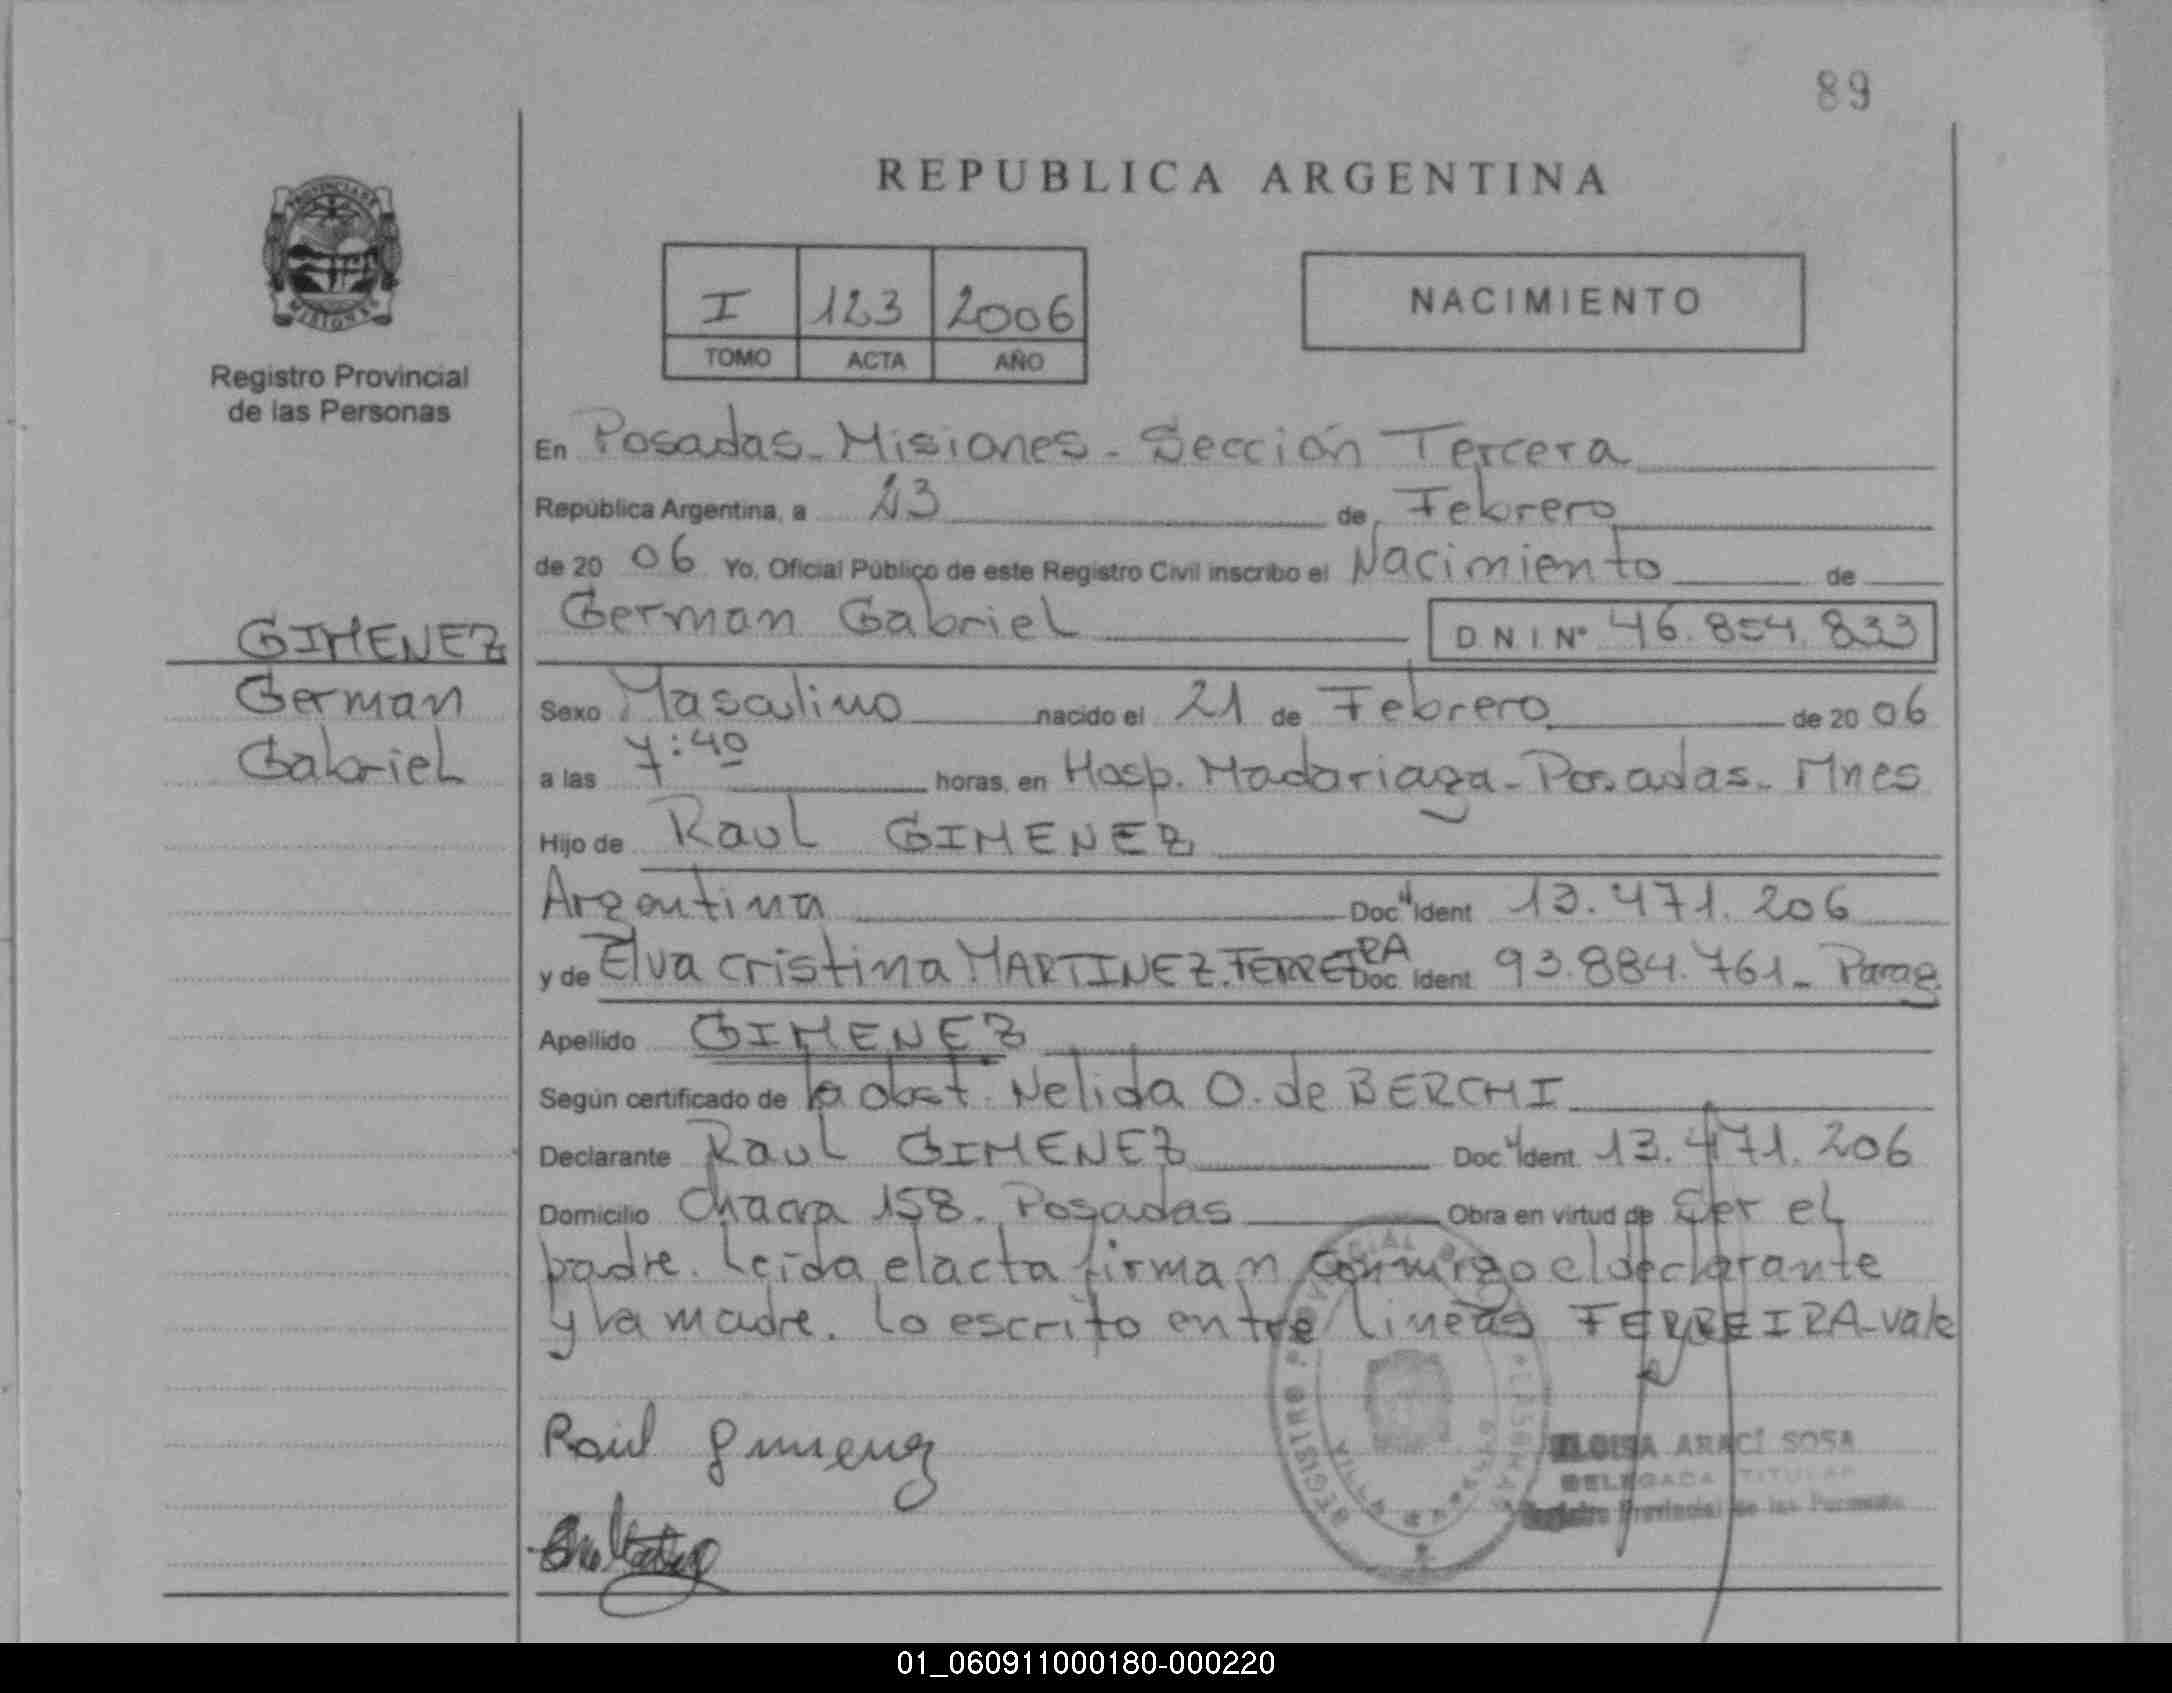 89
REPUBLICA ARGENTINA
I 123 2006
TOMO ACTA AÑO
NACIMIENTO
Registro Provincial
de las Personas
En Posadas - Misiones - Sección Tercera
República Argentina, a 23 de Febrero
de 20 06 Yo, Oficial Público de este Registro Civil inscribo el Nacimiento de
German Gabriel D N I Nº 46.854.833
GIMENEZ
German
Gabriel
Sexo Masculino nacido el 21 de Febrero de 20 06
a las 7:40 horas, en Hosp. Madariaga - Posadas - Mnes
Hijo de Raul GIMENEZ
Argentina Doc Ident 13.471.206
y de Elva cristina MARTINEZ FERREIRA Doc. Ident 93.884.761 - Parag
Apellido GIMENEZ
Según certificado de la obst. Nelida O. de BERCHI
Declarante Raul GIMENEZ Doc Ident. 13.471.206
Domicilio Chacra 158. Posadas Obra en virtud de Ser el
padre. Leida el acta firman conmigo el declarante
y la madre. Lo escrito entre lineas FERREIRA - vale
Raul Gimenez
REGISTRO PROVINCIAL DE LAS PERSONAS
VILLA
ELOISA ARACÍ SOSA
DELEGADA TITULAR
Registro Provincial de las Personas
01_060911000180-000220